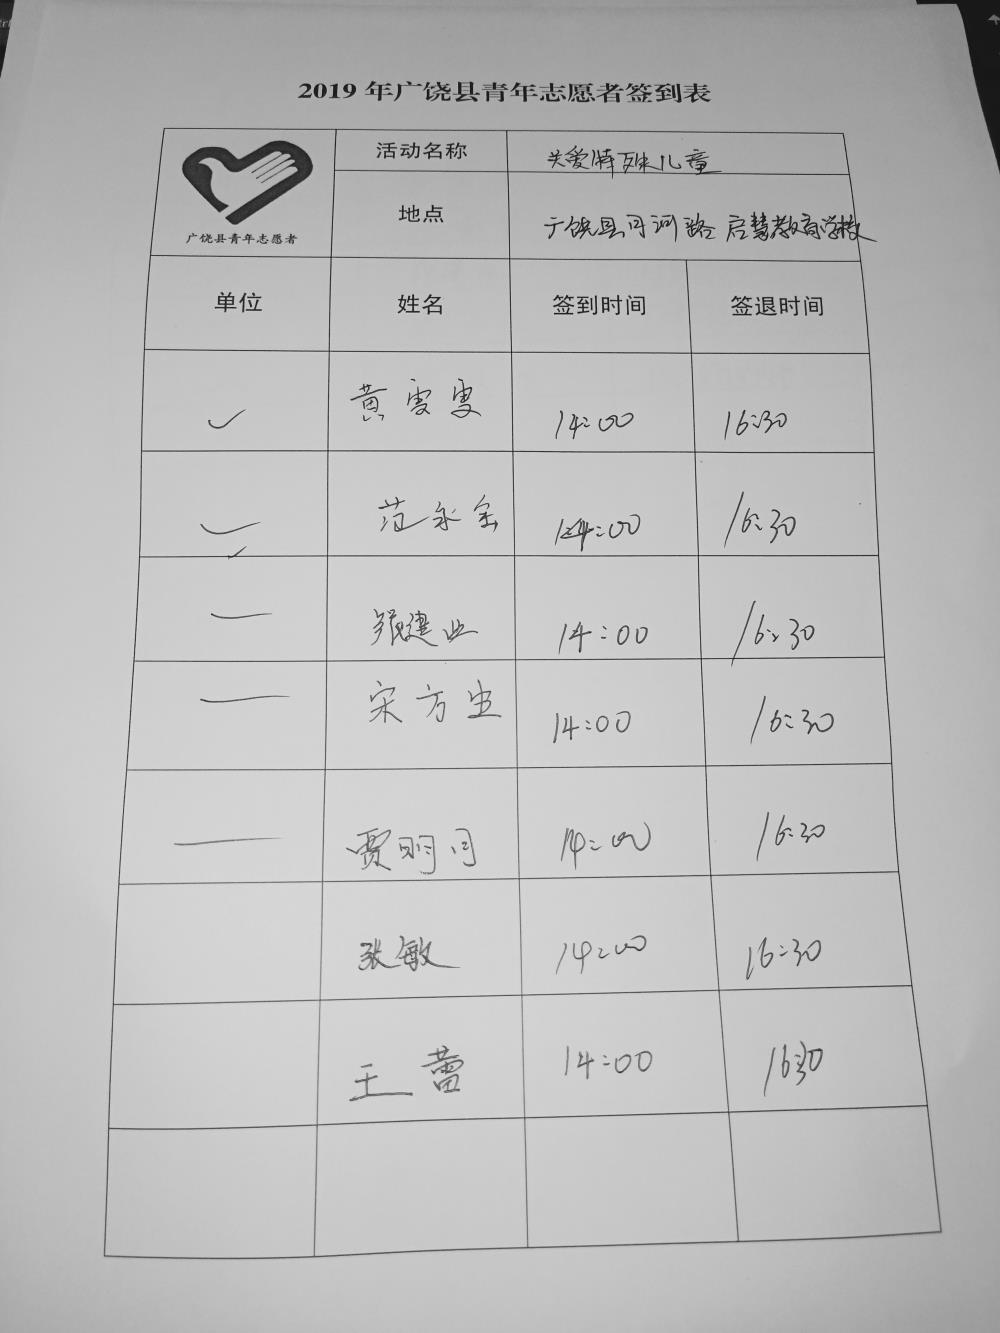 2019 年广饶县青年志愿者签到表
广饶县青年志愿者
活动名称 关爱特殊儿童
地点 广饶县月河路 启慧教育学校
单位 姓名 签到时间 签退时间
黄雯雯 14:00 16:30
范永金 14:00 16:30
建业 14:00 16:30
宋方生 14:00 16:30
贾明月 14:00 16:30
张敏 14:00 16:30
王蕾 14:00 16:30